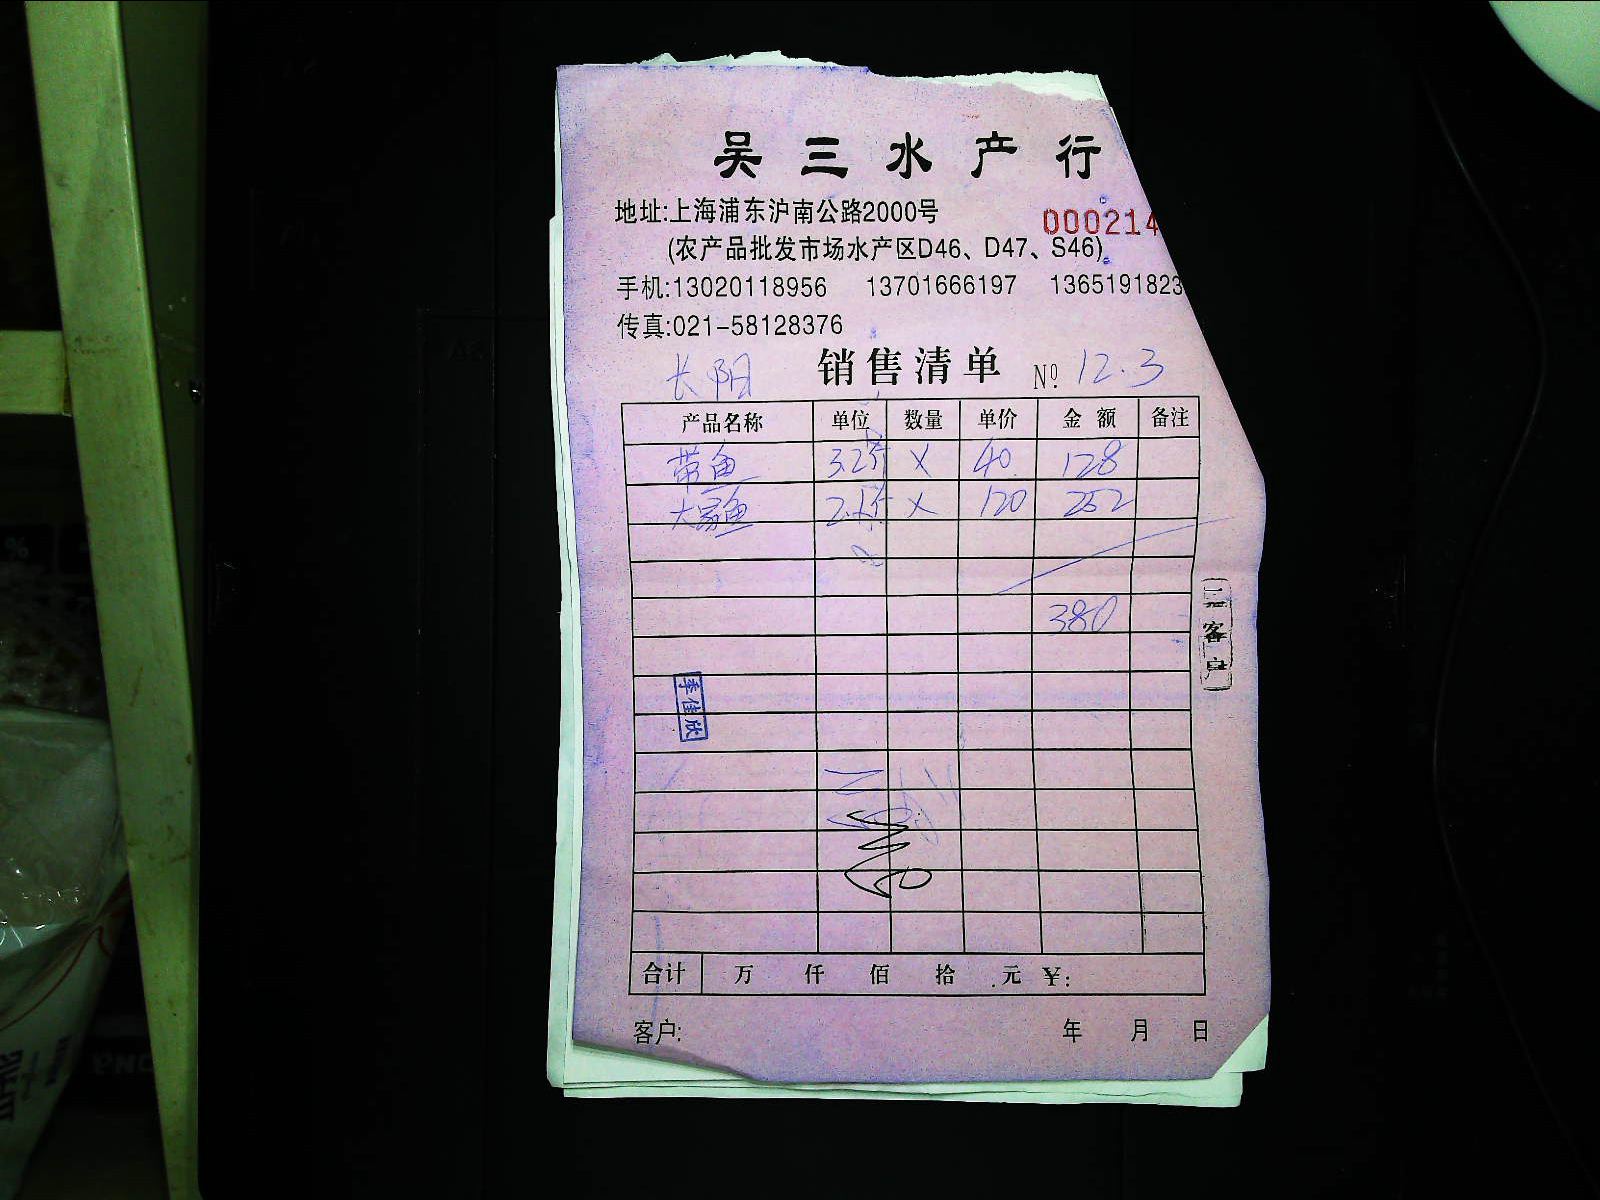 吴三水产行
地址:上海浦东沪南公路2000号
000214
(农产品批发市场水产区D46、D47、S46)
手机:13020118956 13701666197 1365191823
传真:021-58128376
长阳 销售清单 Nº 12.3
产品名称 单位 数量 单价 金额 备注
带鱼 3.2斤 X 40 128
鱼 2.1斤 X 120 252
380
二客户
季佳欣
合计 万 仟 佰 拾 元 ¥:
客户: 年 月 日